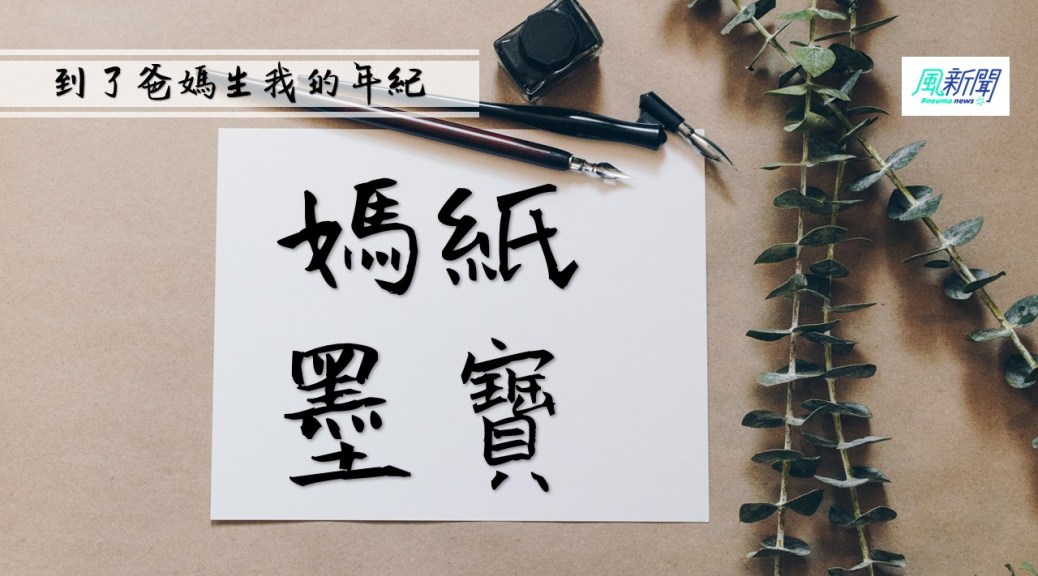 到了爸媽生我的年紀
風新聞
Pneuma news
媽紙
墨寶